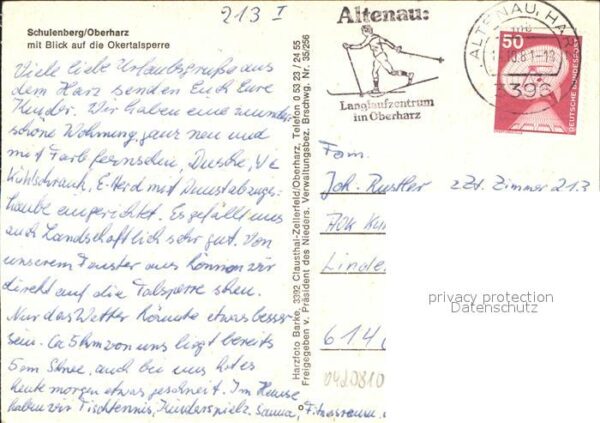 213 I
Schulenberg/Oberharz
mit Blick auf die Okertalsperre
Viele liebe Urlaubsgrüße aus
dem Harz senden Euch Eure
Kinder. Wir haben eine wunder
schöne Wohnung, ganz neu und
mit Farbfernsehen, Dusche, Wc
Kühlschrank, E-Herd mit Dunstabzugs-
haube eingerichtet. Es gefällt uns
auch Landschaftlich sehr gut. Von
unserem Fenster aus können wir
direkt auf die Talsperre sehen.
Nur das Wetter könnte etwas besser
sein. Ca 5 km von uns liegt bereits
5 cm Schnee, auch bei uns hat es
heute morgen etwas geschneit. Im Hause
haben wir Tischtennis, Kinderspielz. Sauna, Fitnessraum.
Harzfoto Barke, 3392 Clausthal-Zellerfeld/Oberharz, Telefon 0 53 23 / 24 55
Freigegeben v. Präsident des Nieders. Verwaltungsbez. Brschwg. Nr. 35/256
Altenau:
Langlaufzentrum
im Oberharz
ALTENAU, HARZ
3396
50
DEUTSCHE BUNDESPOST
Fam.
Joh. Rustler zZt. Zimmer 213
Linde
614
0420810
privacy protection
Datenschutz